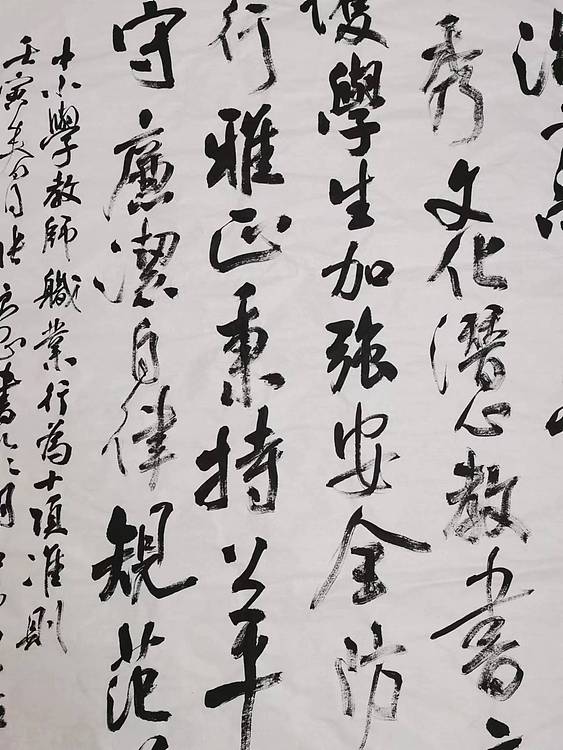 秀文化潜心教書
護學生加強安全防
行雅正秉持公平
守廉潔自律規范
中小學教師職業行為十項准則
壬寅